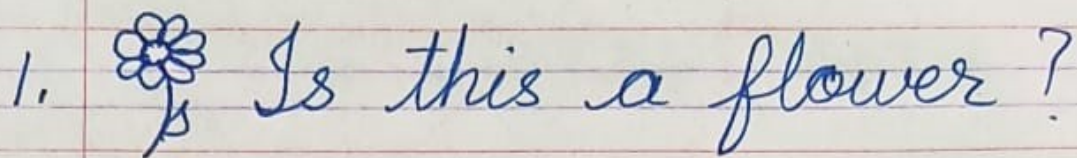 1. Is this a flower ?